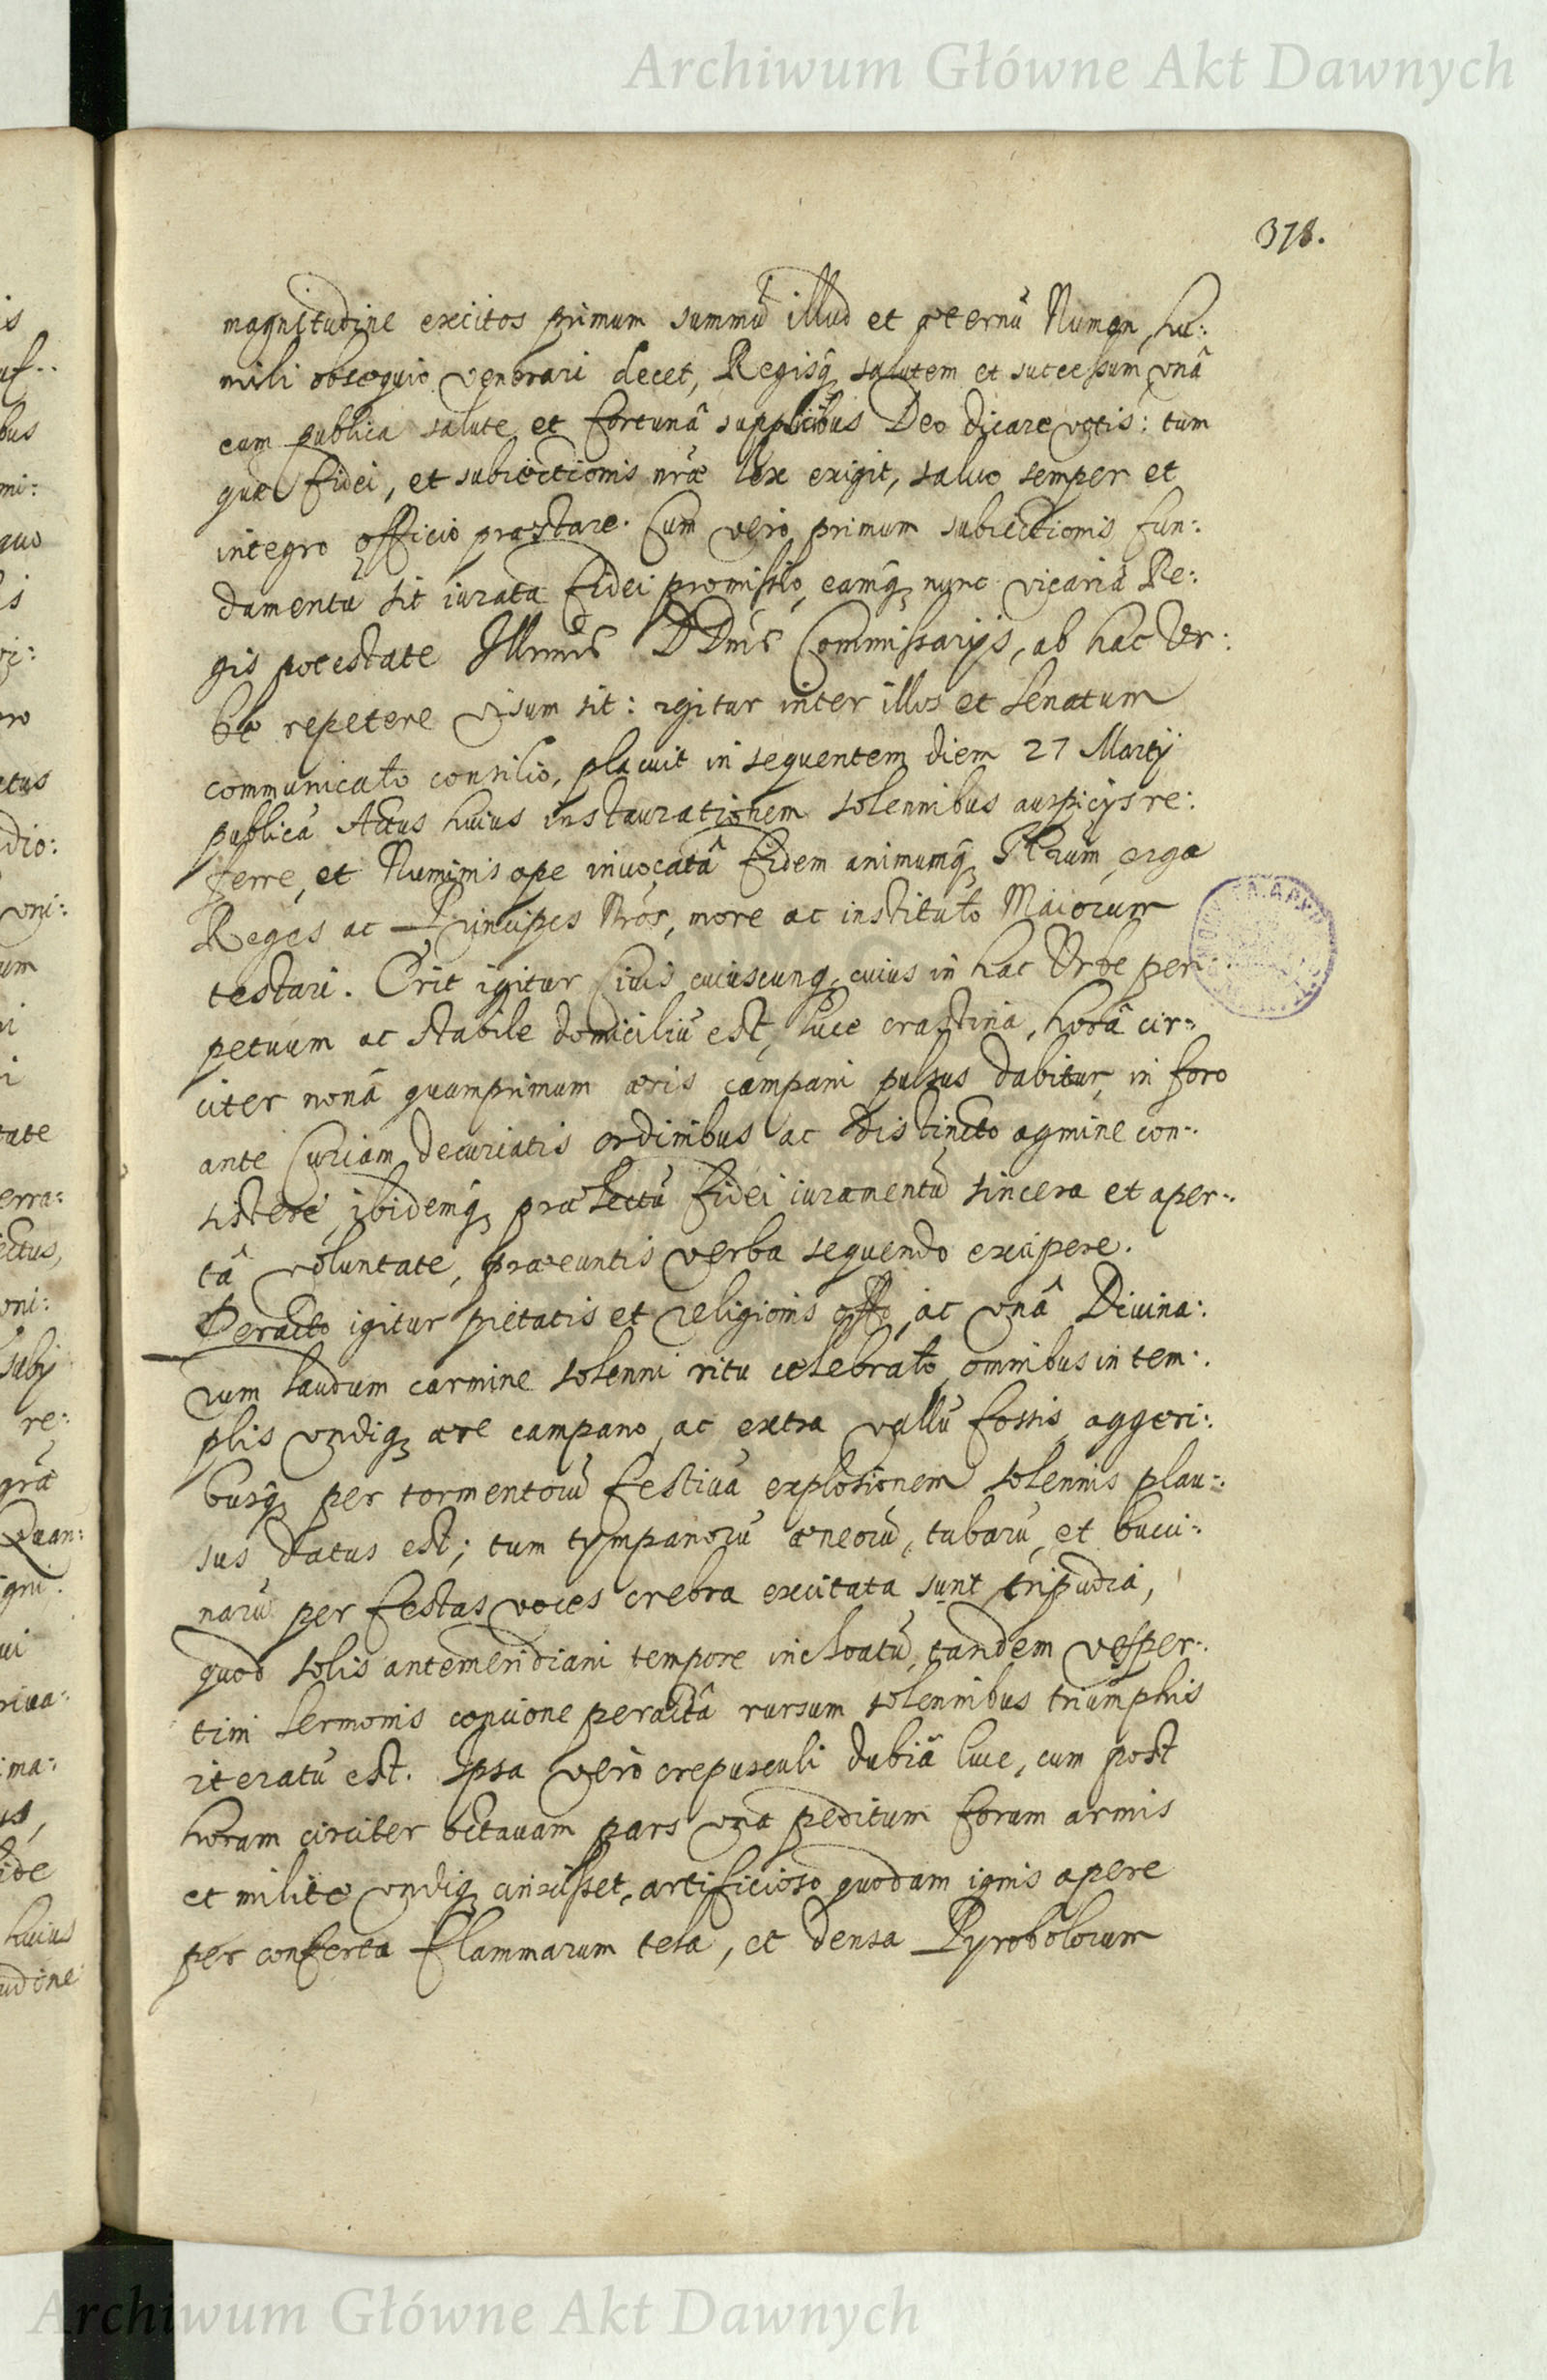 Archiwum Główne Akt Dawnych
378.
magnitudine excitos primum summũ illud et æternũ Numen, hu:
mili obsequio venerari decet, Regisq̃ salutem et successum vnâ
cum publica salute et fortunâ supplicibus Deo dicare votis: tum
quæ fidei, et subiectionis nr̃æ lex exigit, saluo semper et
integro officio præstare. Cum verò primum subiectionis fun:
damentũ sit iurata fidei promissio, eamq̃ nunc vicariâ Re:
gis potestate Illmis DDnis Commissarijs, ab hac Vr:
be repetere visum sit: igitur inter illos et Senatum
communicato consilio, placuit in sequentem diem 27 Martij
publicã Actus huius instaurationem solennibus auspicijs re:
ferre, et Numinis ope inuocatâ fidem animumq̃ erga
Reges ac Principes Nr̃os, more ac instituto Maiorum
testari. Erit igitur Ciuis cuiuscunq, cuius in hac Vrbe per:
petuum ac stabile domiciliũ est, luce crastina, horâ cir:
citer nonâ quamprimum æris campani pulsus dabitur, in foro
ante Curiam decuriatis ordinibus ac distincto agmine con:
sistere, ibidemq̃ prælectũ fidei iuramentũ sincera et aper:
tâ voluntate, præeuntis verba sequendo excipere.
Peracto igitur pietatis et religionis offo, ac vnâ Diuina:
rum laudum carmine solenni ritu celebrato, omnibus in tem:
plis vndiq ære campano, ac extra vallũ fossis, aggeri:
busq̃ per tormentorũ festiuã explosionem solennis plau:
sus datus est; tum tympanorũ æneorũ, tubarũ, et bucci:
narũ per festas voces crebra excitata sunt tripudia,
quod solis antemeridiani tempore inchoatũ, tandem vesper:
tini sermonis concione peractâ rursum solennibus triumphis
iteratũ est. Ipsa verò crepusculi dubiâ luce, cum post
horam circiter octauam pars vna peditum forum armis
et milite vndiq cinxisset, artificioso quodam ignis opere
per conferta flammarum tela, et densa Pyrobolorum
Archiwum Główne Akt Dawnych